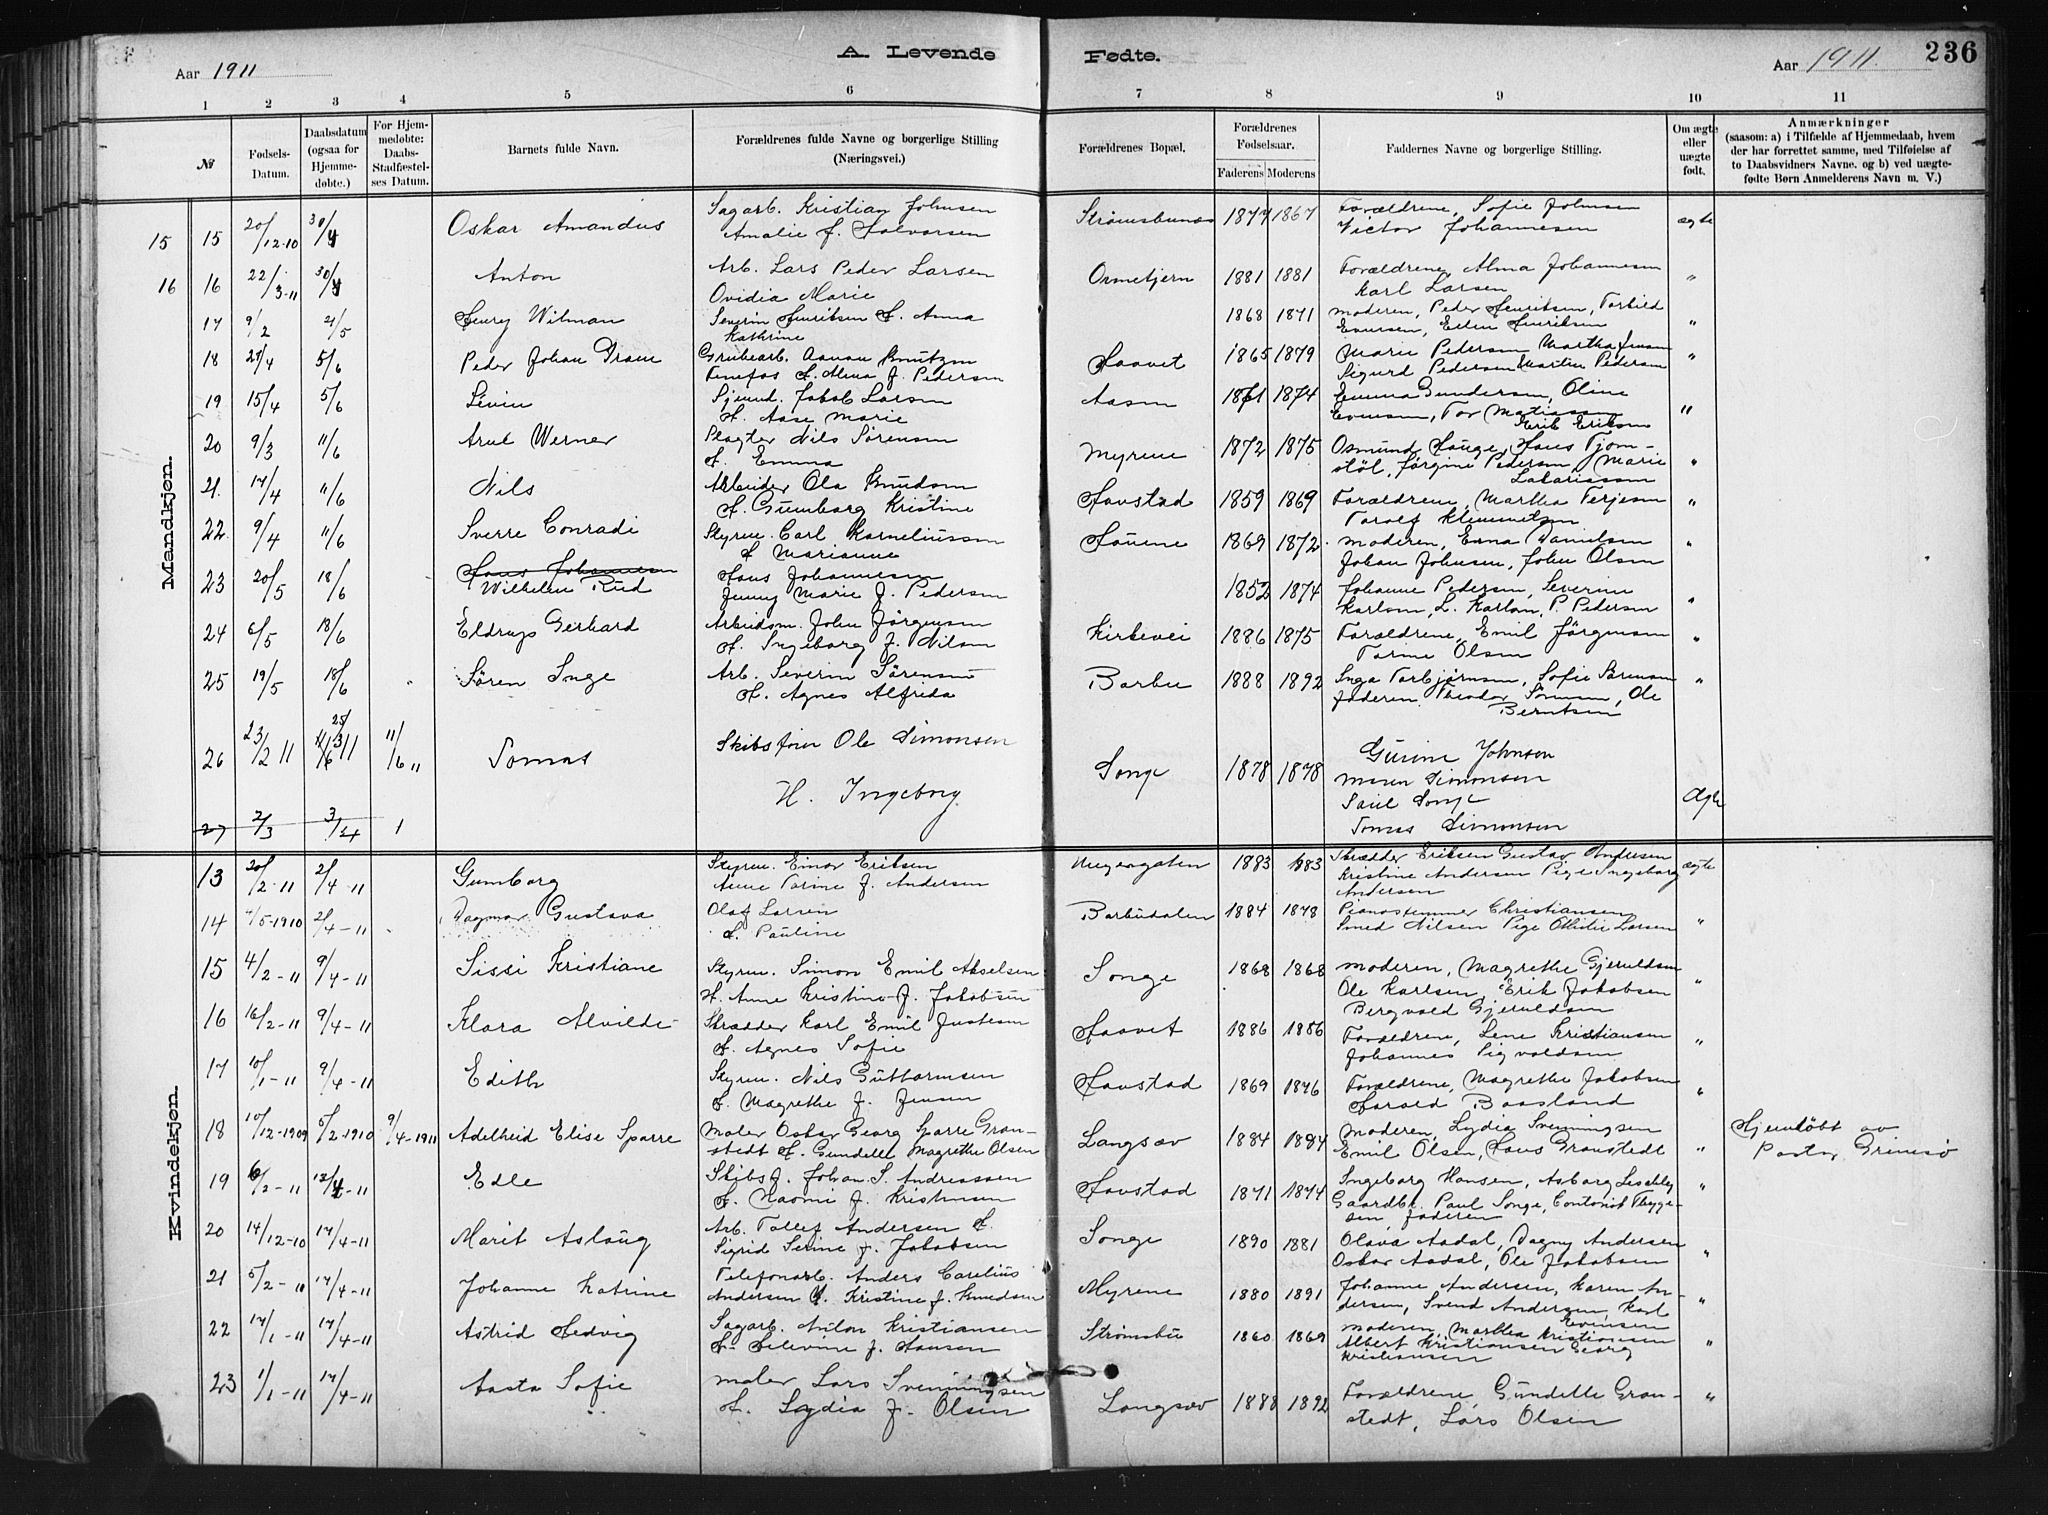 A. Levende Fødte. 236
Aar 1911 Aar 1911.
1 2 3 4 5 6 7 8 9 10 11
№ Fødsels-Datum. Daabsdatum (ogsaa for Hjemme-døbte.) For Hjem-medøbte: Daabs-Stadfæstel-ses Datum. Barnets fulde Navn. Forældrenes fulde Navne og borgerlige Stilling (Næringsvei.) Forældrenes Bopæl. Forældrenes Fødselsaar. Faderens Moderens Faddernes Navne og borgerlige Stilling. Om ægte eller uægte født. Anmærkninger (saasom: a) i Tilfælde af Hjemmedaab, hvem der har forrettet samme, med Tilføielse af to Daabsvidners Navne. og b) ved uægte-fødte Børn Anmelderens Navn m. V.)
Mandkjøn.
15 15 20/12-10 30/4 Oskar Amandus Sagarb. Kristian Johnsen Strømsbunes 1877 1867 Forældrene, Sofie Johnsen ægte
Amalie f. Halvorsen Victor Johannesen
16 16 22/3-11 30/4 Anton Arb. Lars Peder Larsen 1881 1881 Forældrene, Alma Johannesen "
Ovidia Marie Karl Larsen
17 9/2 21/5 Henry Wilman Severin Henriksen H. Anna 1868 1871 moderen, Peder Henriksen, "
Kathrine Henriksen
18 24/4 5/6 Peder Johan Grubearb. Haavet 1865 1879 Marie Pedersen Martha Jensen "
H. Alma f. Pedersen Sigurd Pedersen Martin Pedersen
19 15/4 5/6 Jakob Larsen 1871 1874 Emma Gundersen, Oline "
H. Aase Marie Evensen, Tor Matiassen
Erik Eriksen
20 9/3 11/6 Arul Werner Slagter Nils Sørensen Myrene 1872 1875 Osmund Hauge, Hans Tjom- "
H. Emma støl, Jørgine Pedersen, Marie
21. 14/4 11/6 Nils Arbeider Ola Knudsen Havstad 1859 1869 Forældrene, Martha Terjesen "
H. Gunborg Kristine
22 9/4 11/6 Sverre Conradi Styrm. Carl Korneliussen 1869 1872 moderen, Danielsen "
H Marianne Johan Johnsen, John Olsen
23 20/5 18/6 Hans Johannesen Hans Johannesen
Wilhelm Rud Jenny Marie f. Pedersen 1852 1874 Johanne Pedersen, Severine "
Karlsen, L. Karlsen, P. Pedersen
24 6/5 18/6 Gerhard Arbeidsm. John Jørgensen Kirkevei 1886 1875 Forældrene, Emil Jørgensen "
H. Ingeborg f. Nilsen Olsen
25 19/5 18/6 " Sören Inge Arb. Severin Sørensen Barbu 1888 1892 Inga Torbjørnsen, Sofie "
H. Agnes Alfrida faderen Theodor Sørensen, Ole
Berntsen
26 23/2 11 25/3 11 11/6 " Tomas Skibsfører Ole Simonsen Songe 1878 1878 Gurine Johnsen
H. Ingeborg Maren Simonsen
Songe ægte
27 2/3 3/4 1 Tomas Simonsen
Kvindekjøn.
13 20/2-11 2/4-11 Gunborg Styrm. Einar Eriksen 1883 1883 Skrædder Eriksen Gustav Andersen ægte
Anne Torine f. Andersen Kristine Andersen Pige Ingeborg
Andersen
14 4/5-1910 2/4-11 Dagmar Gustava Olaf Larsen Barbudalen 1884 1878 Pianostemmer Christiansen "
H. Pauline Smed Nilsen Pige Larsen
15 4/2-11 9/4-11 Sissi Kristiane Styrm. Simon Emil Akselsen Songe 1868 1868 moderen, Magrethe Gjeruldsen "
H. Anne Kristine f. Jakobsen Ole Karlsen, Erik Jakobsen
Bergvald Gjeruldsen
16 16/2-11 9/4-11 Klara Alvilde Skrædder Karl Emil Justesen Haavet 1886 1886 Forældrene, Lene Kristiansen "
H. Agnes Sofie Johannes Sigvaldsen
17 10/1-11 9/4-11 Edith Styrm. Nils Guttormsen Havstad 1869 1876 Forældrene, Magrethe Jakobsen "
H. Magrethe f. Jensen Harald Baasland
18 10/12-1909 5/2-1910 9/4-1911 Adelheid Elise Sparre Maler Oskar Georg Sparre Gran- Langsæv 1884 1884 moderen, Lydia Svenningsen " Hjemdøbt av
stedt H. Gundelle Magrethe Olsen Emil Olsen, Hans Granstedt Pastor Grimsø
19 6/2-11 12/4-11 Edle Skibsf. Johan S. Andreassen Havstad 1871 1874 Ingeborg Hansen, Asborg "
H. Naomi f. Kristensen Gaardbr. Paul Songe, Contorist Thygge-
sen, faderen
20 14/12-10 17/4-11 Marit Aslaug Arb. Tallef Andersen H. Songe 1890 1881 Olava Aadal, Dagny Andersen "
Sigrid Serine f. Jakobsen Oskar Aadal, Ole Jakobsen
21 5/2-11 17/4-11 Johanne Katrine Telefonarb. Anders Carelius Myrene 1880 1891 Johanne Andersen, Karen An- "
Andersen H. Kristine f. Knudsen dersen, Svend Andersen, Karl
Evensen
22 17/1-11 17/4-11 Astrid Hedvig Sagarb. Anton Kristiansen Strømsbu 1860 1869 moderen, Martha Kristiansen "
H. Selevine f. Hansen Albert Kristiansen Georg
Kristiansen
23 1/1-11 17/4-11 Aasta Sofie maler Lars Svenningsen Langsæv 1888 1892 Forældrene, Gundelle Gran- "
H. Lydia f. Olsen stedt, Lars Olsen